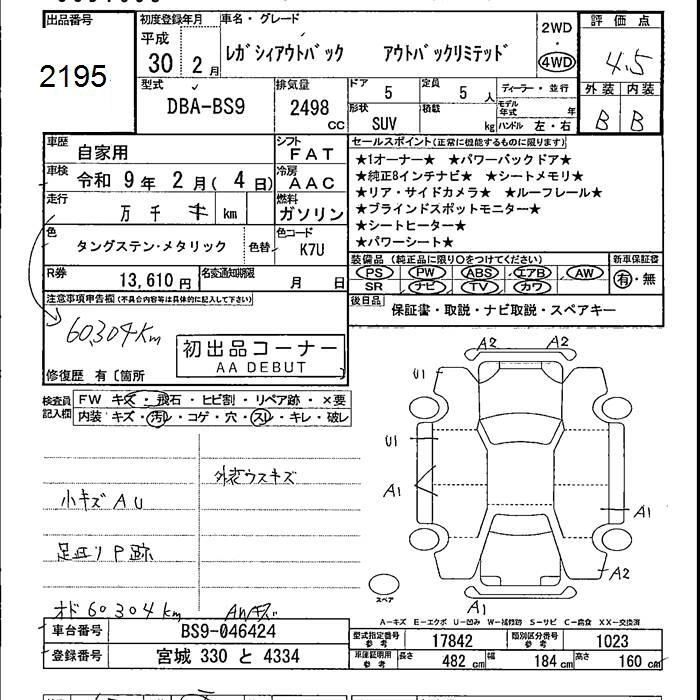 出品番号
2195
初度登録年月
平成
30 2月
車名・グレード
レガシィアウトバック アウトバックリミテッド
2WD
・
4WD
評価点
4.5
外装 内装
B B
型式
DBA-BS9
排気量
2498
CC
ドア
5
定員
5 人
形状
SUV
積載
kg
ディーラー・並行
モデル年式 年
ハンドル 左・右
車歴
自家用
シフト
FAT
車検
令和 9年 2月(4日)
冷房
AAC
走行
万 千 km
燃料
ガソリン
色
タングステン・メタリック
色替
色コード
K7U
R券
13,610円
名変通知期限
月 日
セールスポイント(正常に機能するものに限ります)
★1オーナー★ ★パワーバックドア★
★純正8インチナビ★ ★シートメモリ★
★リア・サイドカメラ★ ★ルーフレール★
★ブラインドスポットモニター★
★シートヒーター★
★パワーシート★
装備品(純正品に限り○をつけてください)
PS PW ABS エアB AW
SR ナビ TV カワ
新車保証書
有・無
後日品
保証書・取説・ナビ取説・スペアキー
注意事項申告欄(不具合内容等は具体的に記入して下さい)
60,304Km
初出品コーナー
AA DEBUT
修復歴 有〔箇所
検査員記入欄
FW キズ・飛石・ヒビ割・リペア跡・×要
内装 キズ・汚レ・コゲ・穴・スレ・キレ・破レ
外装ウスキズ
小キズ A U
足廻り P 跡
オド 60304km AWキズ
A2 A2
U1
U1
A1
A1
A2
A1
スペア
A-キズ E-エクボ U-凹み W-補修跡 S-サビ C-腐食 XX-交換済
車台番号
BS9-046424
登録番号
宮城 330 と 4334
型式指定番号
参考
17842
類別区分番号
参考
1023
車庫証明用
参考
長さ 482cm
幅 184cm
高さ 160cm